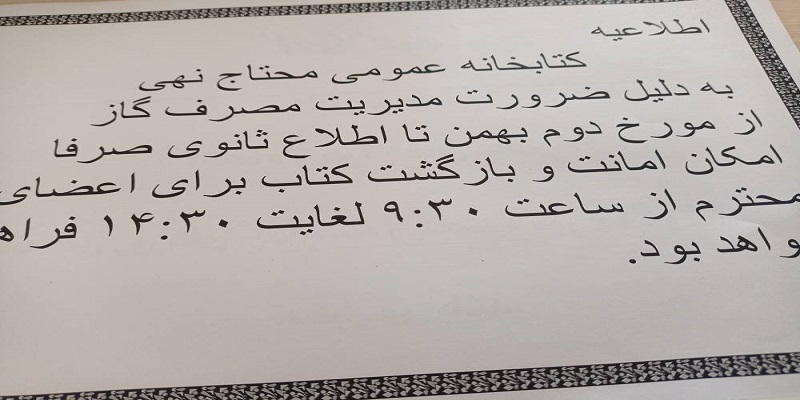 اطلاعیه
کتابخانه عمومی محتاج نهی
به دلیل ضرورت مدیریت مصرف گاز
از مورخ دوم بهمن تا اطلاع ثانوی صرفا
امکان امانت و بازگشت کتاب برای اعضای
محترم از ساعت ۹:۳۰ لغایت ۱۴:۳۰ فراه
واهد بود.